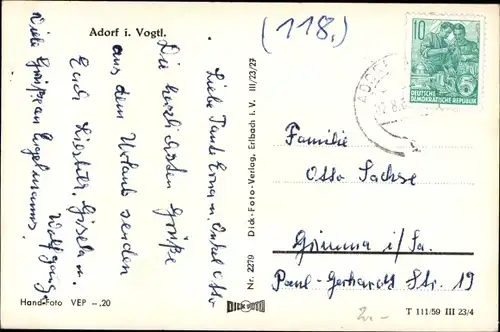 Adorf i. Vogtl.
(118.)
Liebe Tante Erna u. Onkel Otto
Die herzlichsten Grüße
aus dem Urlaub senden
Euch Lieselott, Gisela u.
Wolfgang.
Viele Grüße an Engelmanns.
Hand-Foto VEP -,20
Nr. 2279 Dick-Foto-Verlag, Erlbach i. V. III/23/27
DICK FOTO
10
DEUTSCHE
DEMOKRATISCHE REPUBLIK
ADORF
Familie
Otto Sachse
Grimma i/Sa.
Paul-Gerhardt Str. 19
T 111/59 III 23/4